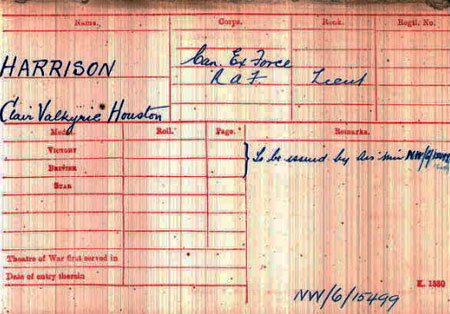 Name. Corps. Rank. Regtl. No.
HARRISON Can. Ex Force
R A F. Lieut
Clair Valkyrie Houston
Medal. Roll. Page. Remarks.
VICTORY } To be issued by Air Min NW/6/15499
BRITISH
STAR
Theatre of War first served in
Date of entry therein K. 1380
NW/6/15499